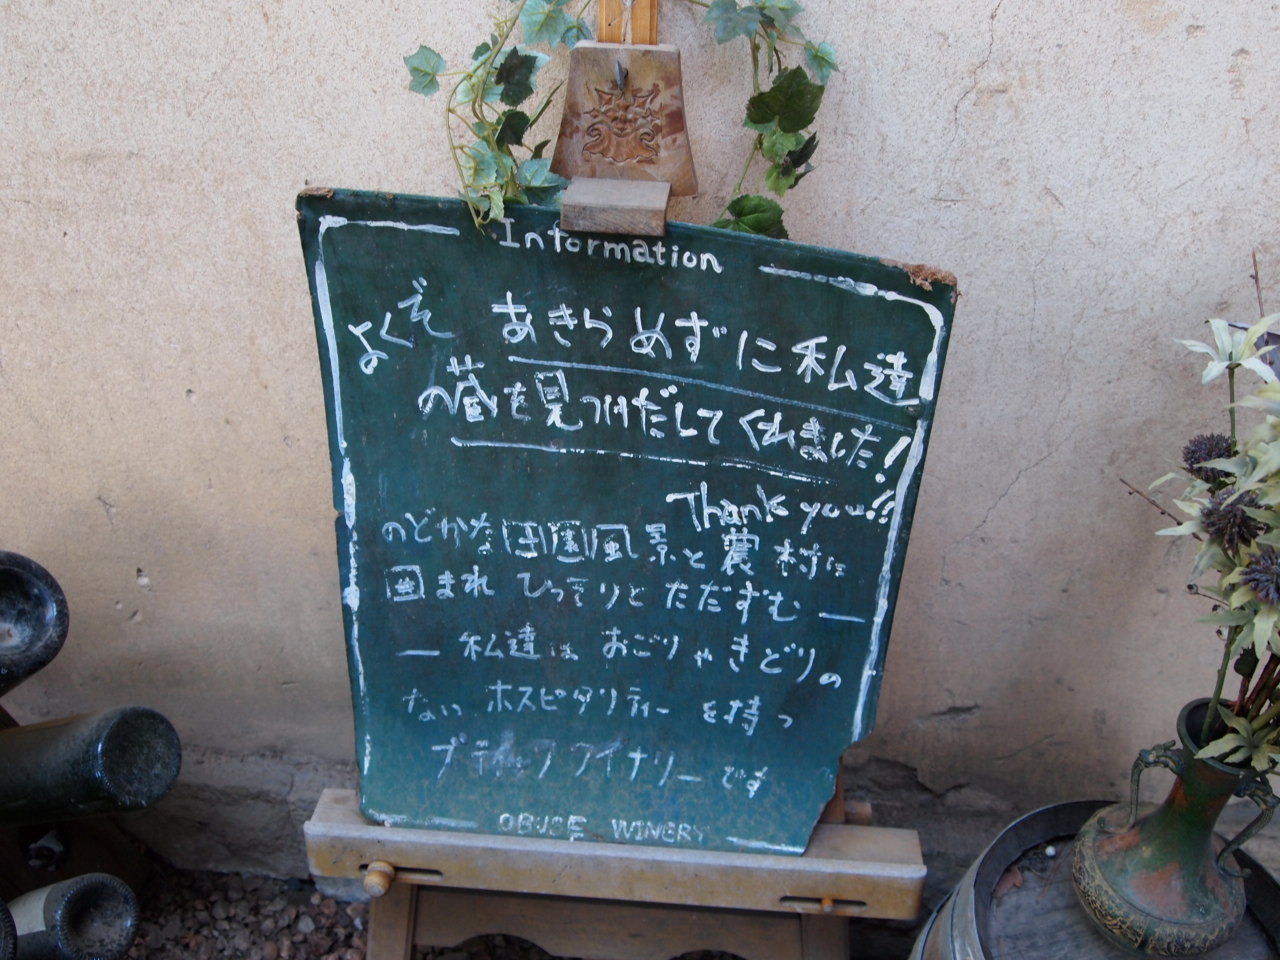 Information
よくぞ あきらめずに私達
の蔵を見つけだしてくれました!
Thank you!!
のどかな田園風景と農村に
囲まれ ひっそりとたたずむ —
— 私達は おごりやきどりの
ない ホスピタリティーを持つ
ブティックワイナリーです
OBUSE WINERY